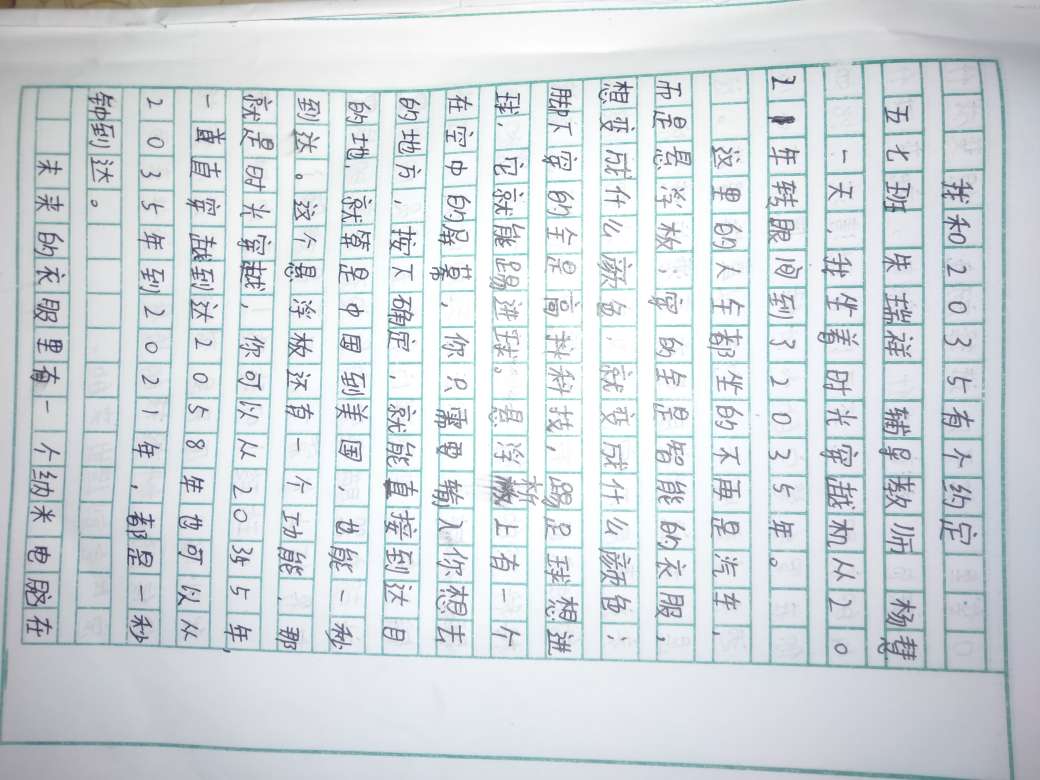 我和2035有个约定
五七班 朱瑞祥 辅导教师 杨慧
一天,我坐着时光穿越机从20
21年转眼间到32035年。
这里的人车都坐的不再是汽车,
而是悬浮板;穿的全是智能的衣服,
想变成什么颜色,就变成什么颜色;
脚下穿的全是高科科技,踢足球想进
球,它就能踢进球。悬浮板上有一个
在空中的屏幕,你只需要输入你想去
的地方,按下确定,就能直接到达目
的地,就算是中国到美国,也能一秒
到达。这个悬浮板还有一个功能,那
就是时光穿越,你可以从2035年,
一首直穿越到达2058年也可以从
2035年到2021年,都是一秒
钟到达。
未来的衣服里有一个纳米电脑在